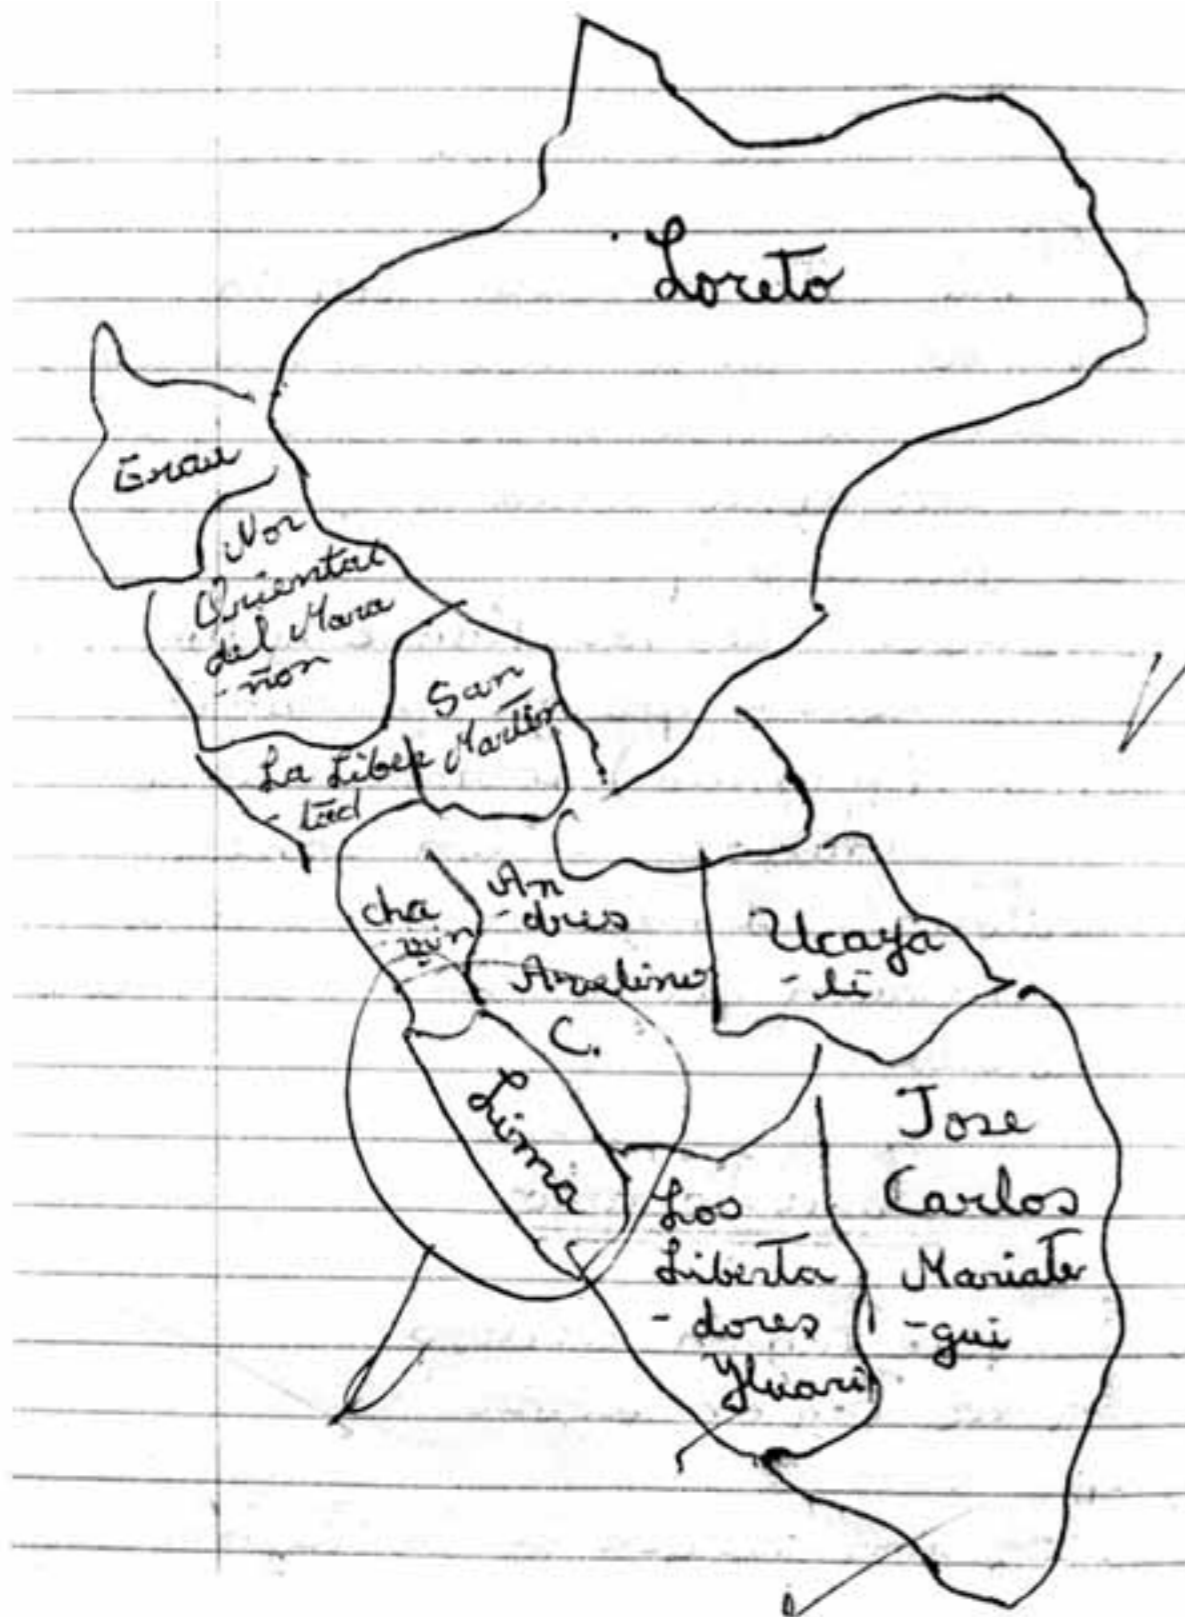 Loreto
Grau
Nor
Oriental
del Mara
-ñon
San
Martín
La Liber
-tad
cha
-vin
An
-dres
Avelino
C.
Ucaya
-li
Lima
Jose
Carlos
Mariate
-gui
Los
Liberta
-dores
Yhuari